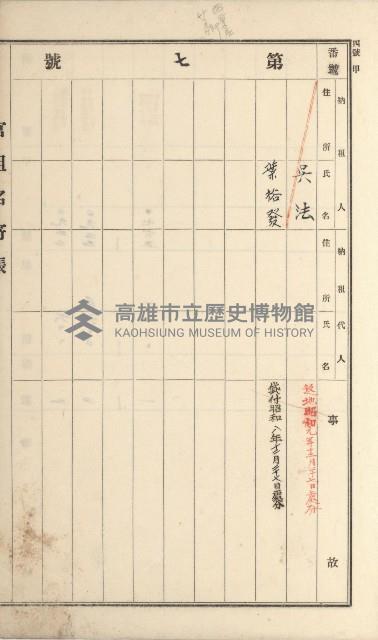 四號甲
番號
第七號
納租人
住所氏名
納租代人
住所氏名
事故
吳法
葉裕發
昭和元年十二月二十二日處分
貸付昭和八年十二月二十七日處分
官租名寄帳
高雄市立歷史博物館
KAOHSIUNG MUSEUM OF HISTORY